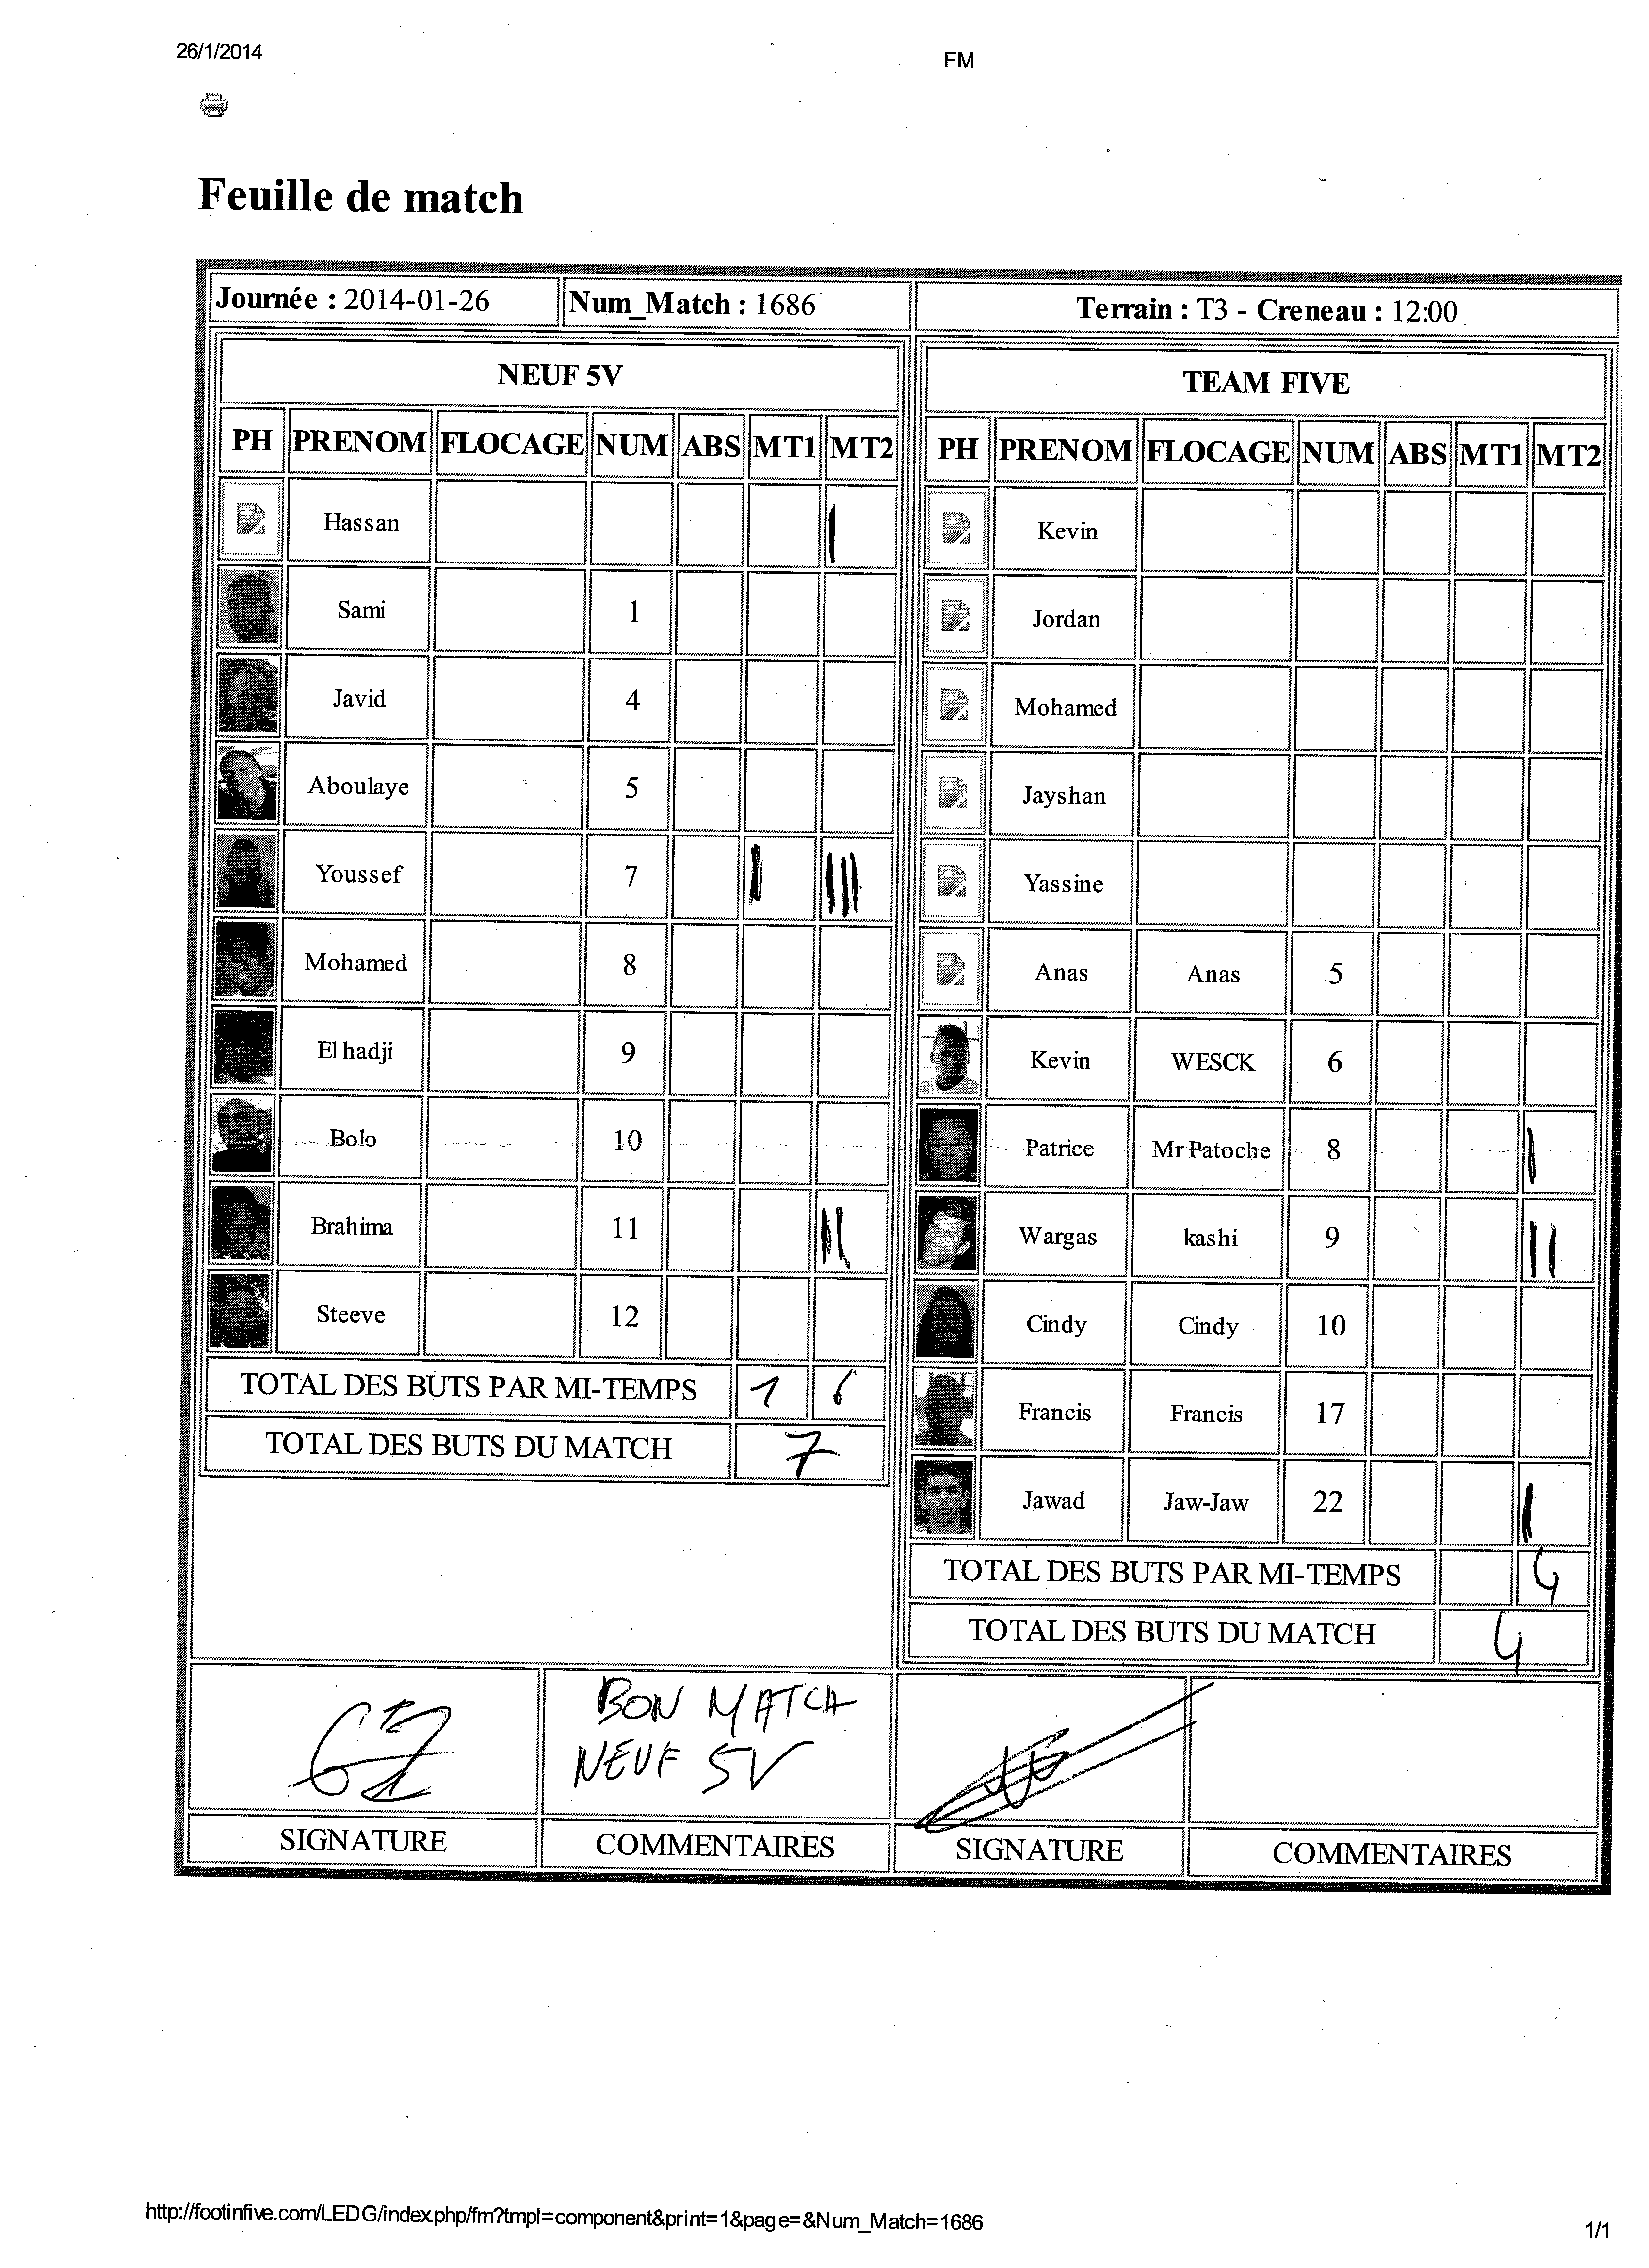 26/1/2014
FM
Feuille de match
Journée : 2014-01-26 Num_Match : 1686 Terrain : T3 - Creneau : 12:00
NEUF 5V
PH PRENOM FLOCAGE NUM ABS MT1 MT2
Hassan |
Sami 1
Javid 4
Aboulaye 5
Youssef 7 | |||
Mohamed 8
El hadji 9
Bolo 10
Brahima 11 ||
Steeve 12
TOTAL DES BUTS PAR MI-TEMPS 1 6
TOTAL DES BUTS DU MATCH 7
TEAM FIVE
PH PRENOM FLOCAGE NUM ABS MT1 MT2
Kevin
Jordan
Mohamed
Jayshan
Yassine
Anas Anas 5
Kevin WESCK 6
Patrice Mr Patoche 8 |
Wargas kashi 9 ||
Cindy Cindy 10
Francis Francis 17
Jawad Jaw-Jaw 22 |
TOTAL DES BUTS PAR MI-TEMPS 4
TOTAL DES BUTS DU MATCH 4
BON MATCH
NEUF 5V
SIGNATURE COMMENTAIRES SIGNATURE COMMENTAIRES
http://footinfive.com/LEDG/index.php/fm?tmpl=component&print=1&page=&Num_Match=1686
1/1